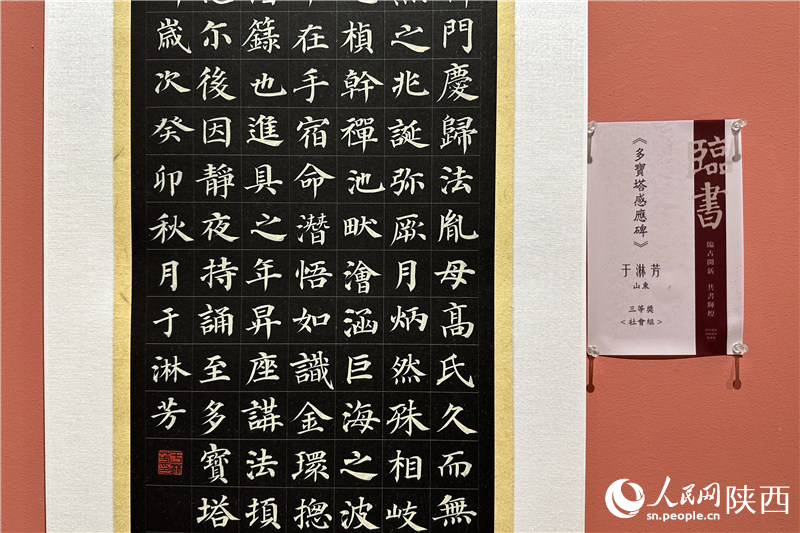 門慶歸法胤母高氏久而無
之兆誕弥厥月炳然殊相岐
楨幹禪池畎澮涵巨海之波
在手宿命潛悟如識金環揔
籙也進具之年昇座講法頓
尓後因靜夜持誦至多寶塔
歲次癸卯秋月于淋芳
臨書
臨古開新 共書輝煌
《多寶塔感應碑》
于淋芳
山東
三等獎
<社會組>
人民网 陕西
sn.people.cn